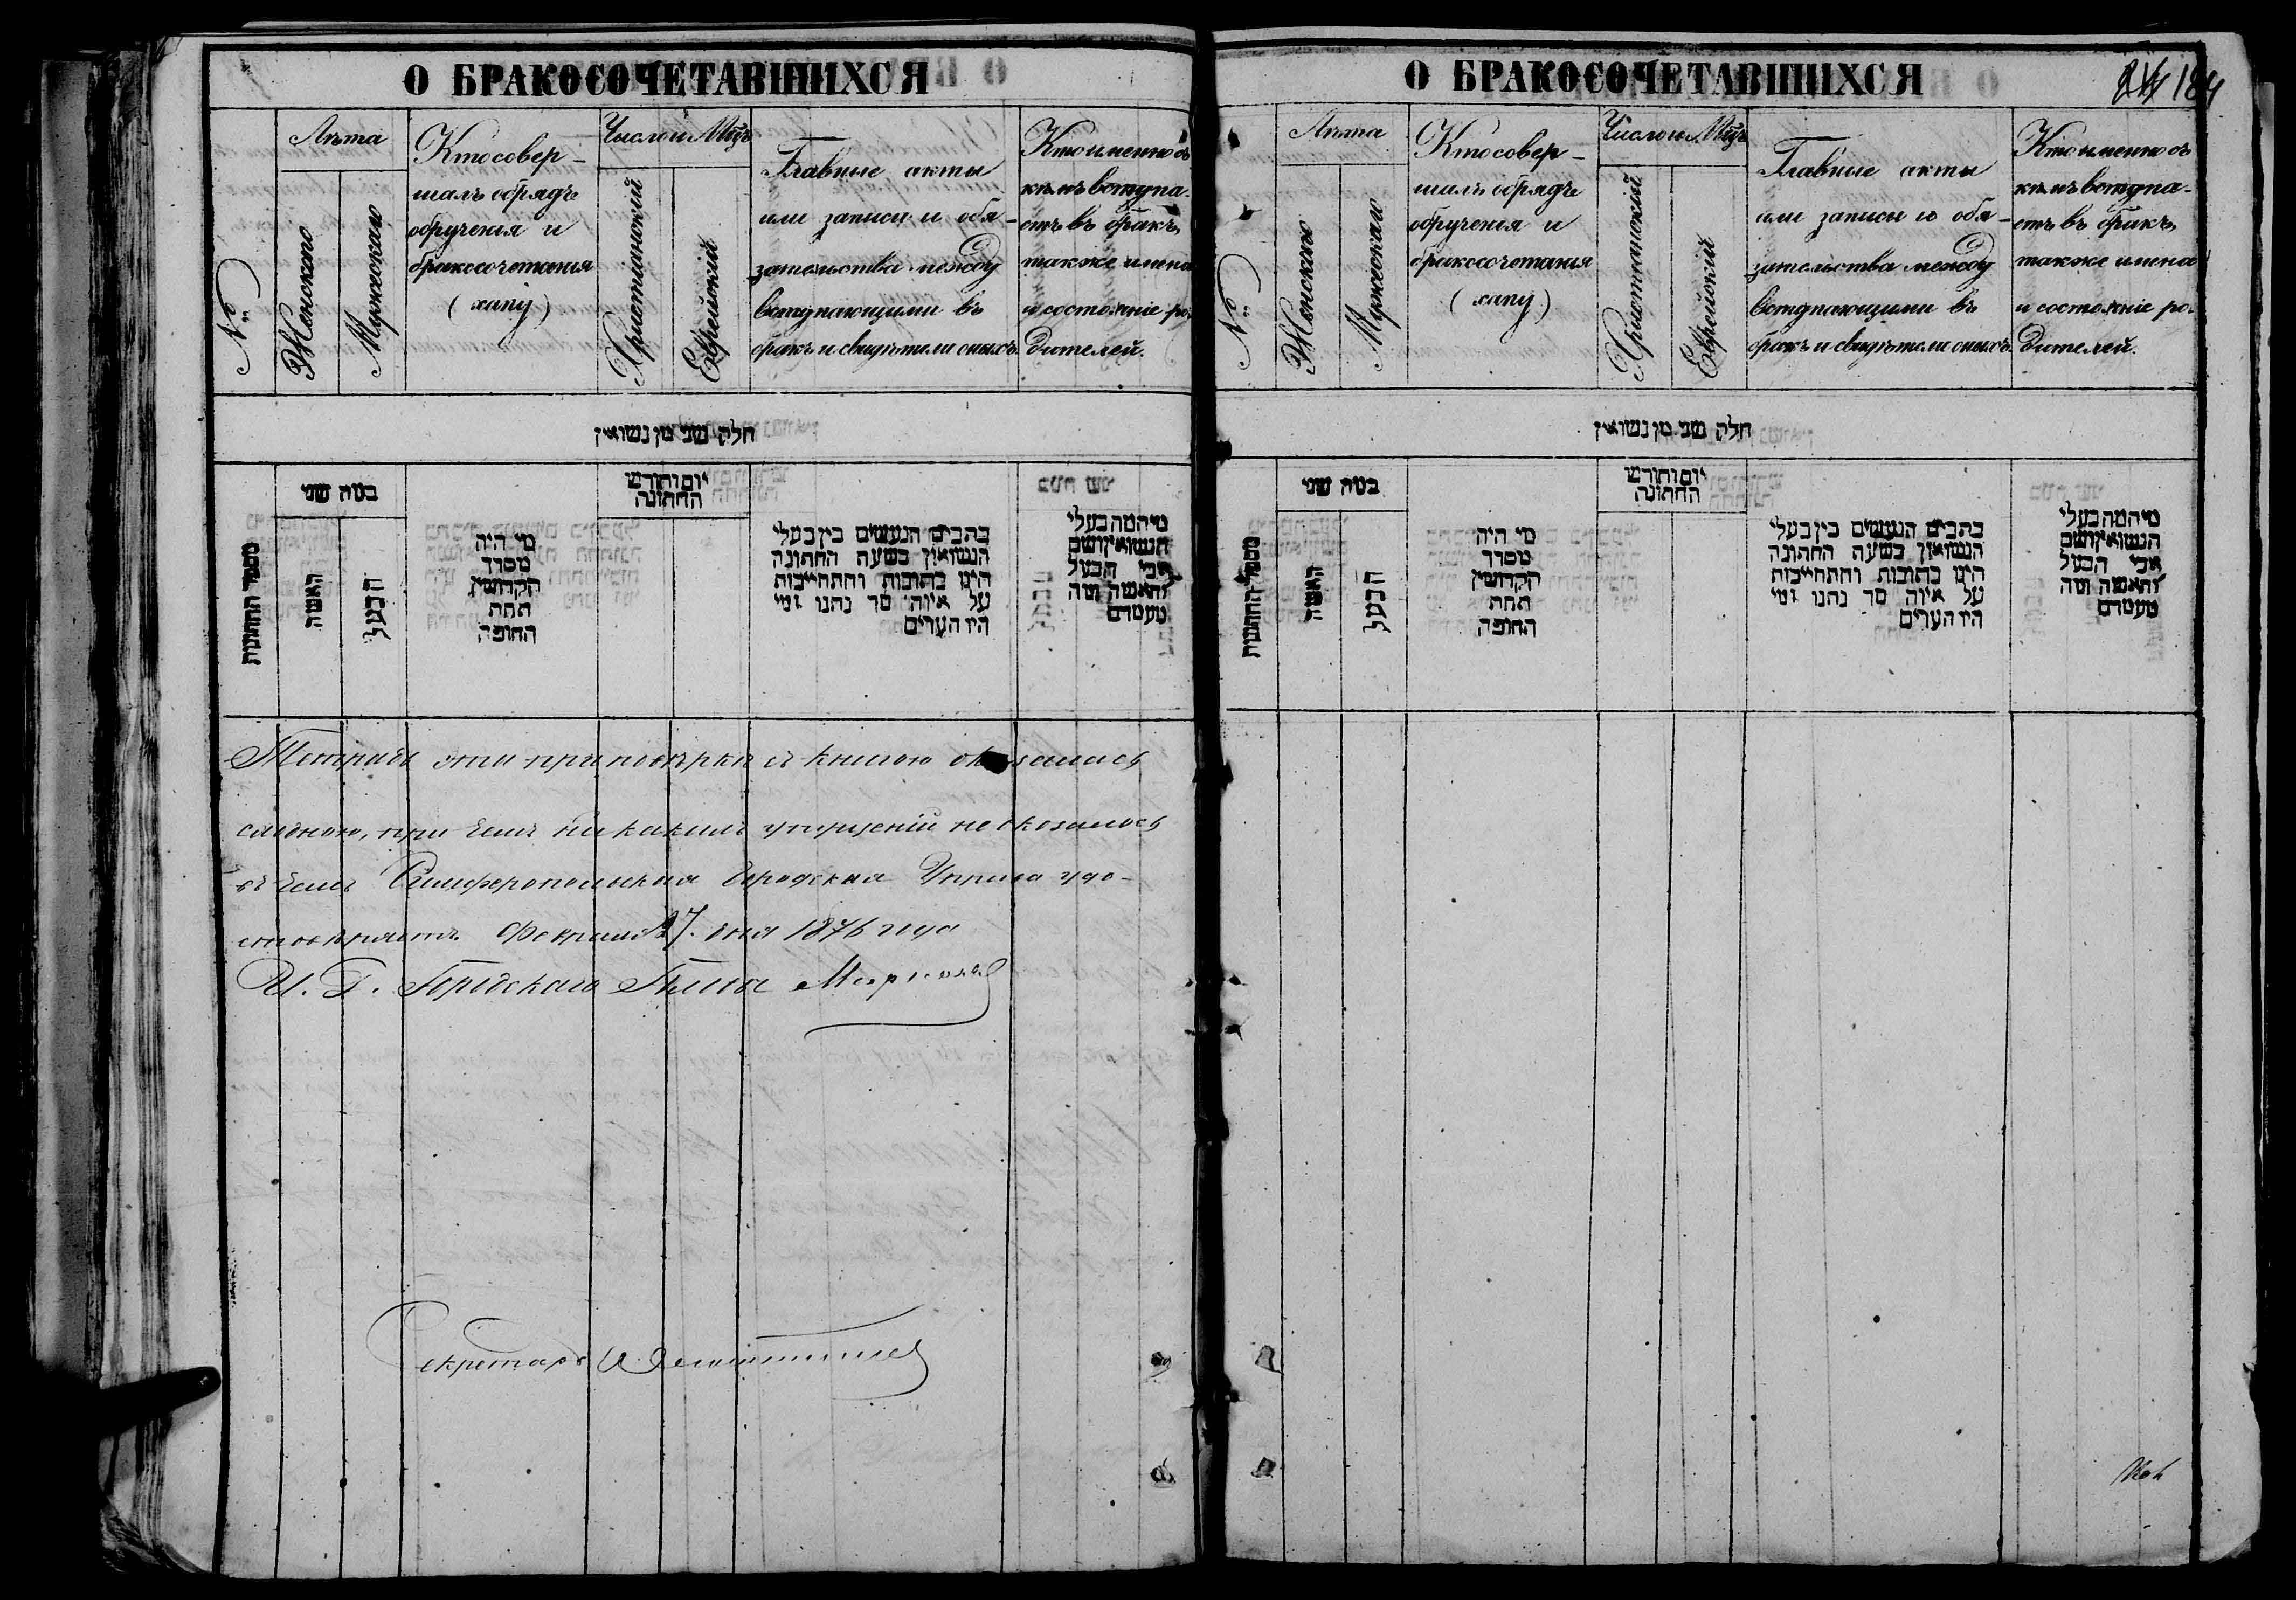 О БРАКОСОЧЕТАВШИХСЯ
№
Лѣта
Женскаго
Мужескаго
Кто совер-
шалъ обрядъ
обрученія и
бракосочетанія
(хапу)
Число и Мцъ
Христіанскій
Еврейскій
Главные акты
или записи и обя-
зательства между
вступающими въ
бракъ и свидѣтели оныхъ.
Кто именно съ
кѣмъ вступа-
етъ въ бракъ,
также имена
и состояніе ро-
дителей.
חלק שני מן נשואין
מספר החתונות
כמה שני
האשה
הבעל
מי היה
מסדר
הקדושין
תחת
החופה
יום וחודש
החתונה
כתבים הנעשים בין בעלי
הנשואין בשעת החתונה
היינו כתובות והתחייבות
על איזה סך נתנו ומי
היו העדים
מי המה בעלי
הנשואין ושם
אבי הבעל
והאשה ומה
מעמדם
Тетрадь эта при повѣркѣ съ книгою оказалась
сходною, при чемъ никакихъ упущеній не оказалось
въ чемъ Симферопольская Городская Управа удо-
стовѣряетъ Февраля 27 дня 1876 года
И. Д. Городскаго Головы
Секретарь
О БРАКОСОЧЕТАВШИХСЯ
184
№
Лѣта
Женскаго
Мужескаго
Кто совер-
шалъ обрядъ
обрученія и
бракосочетанія
(хапу)
Число и Мцъ
Христіанскій
Еврейскій
Главные акты
или записи и обя-
зательства между
вступающими въ
бракъ и свидѣтели оныхъ.
Кто именно съ
кѣмъ вступа-
етъ въ бракъ,
также имена
и состояніе ро-
дителей.
חלק שני מן נשואין
מספר החתונות
כמה שני
האשה
הבעל
מי היה
מסדר
הקדושין
תחת
החופה
יום וחודש
החתונה
כתבים הנעשים בין בעלי
הנשואין בשעת החתונה
היינו כתובות והתחייבות
על איזה סך נתנו ומי
היו העדים
מי המה בעלי
הנשואין ושם
אבי הבעל
והאשה ומה
מעמדם